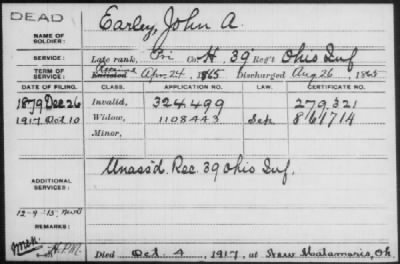 DEAD
NAME OF SOLDIER: Earley, John A.
SERVICE: Late rank, Pri Co. H, 39 Reg't Ohio Inf
TERM OF SERVICE: Enlisted Apr. 24, 1865 Discharged Aug 26, 1865
DATE OF FILING. CLASS. APPLICATION NO. LAW. CERTIFICATE NO.
1879 Dec 26 Invalid, 324,499 279,321
1917 Oct 10 Widow, 1108443 Sep 861714
Minor,
ADDITIONAL SERVICES: Unass'd. Rec. 39 Ohio Inf.
12-9-'15;
REMARKS:
H.P.M.
Died Oct. 4, 1917, at New Matamoris, Oh.